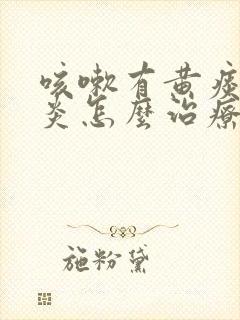 咳嗽有黄痰
炎怎麼治療
施粉黛